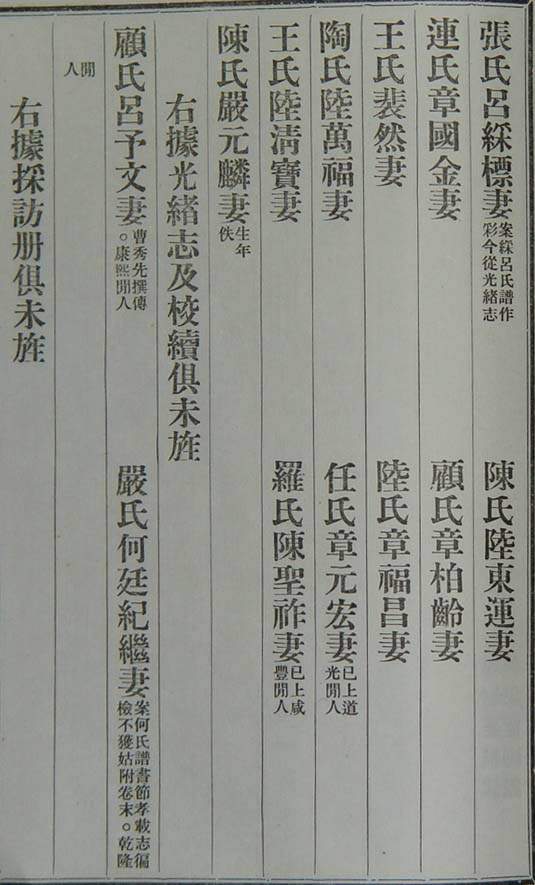 張氏呂綵標妻案綵呂氏譜作彩今從光緒志　陳氏陸東運妻
連氏章國金妻　顧氏章柏齡妻
王氏裴然妻　陸氏章福昌妻
陶氏陸萬福妻　任氏章元宏妻已上道光閒人
王氏陸淸寶妻　羅氏陳聖祚妻已上咸豐閒人
陳氏嚴元麟妻生年佚
右據光緒志及校續俱未旌
顧氏呂予文妻曹秀先撰傳。康熙閒人　嚴氏何廷紀繼妻案何氏譜書節孝載志徧檢不獲姑附卷末。乾隆
閒人
右據採訪册俱未旌